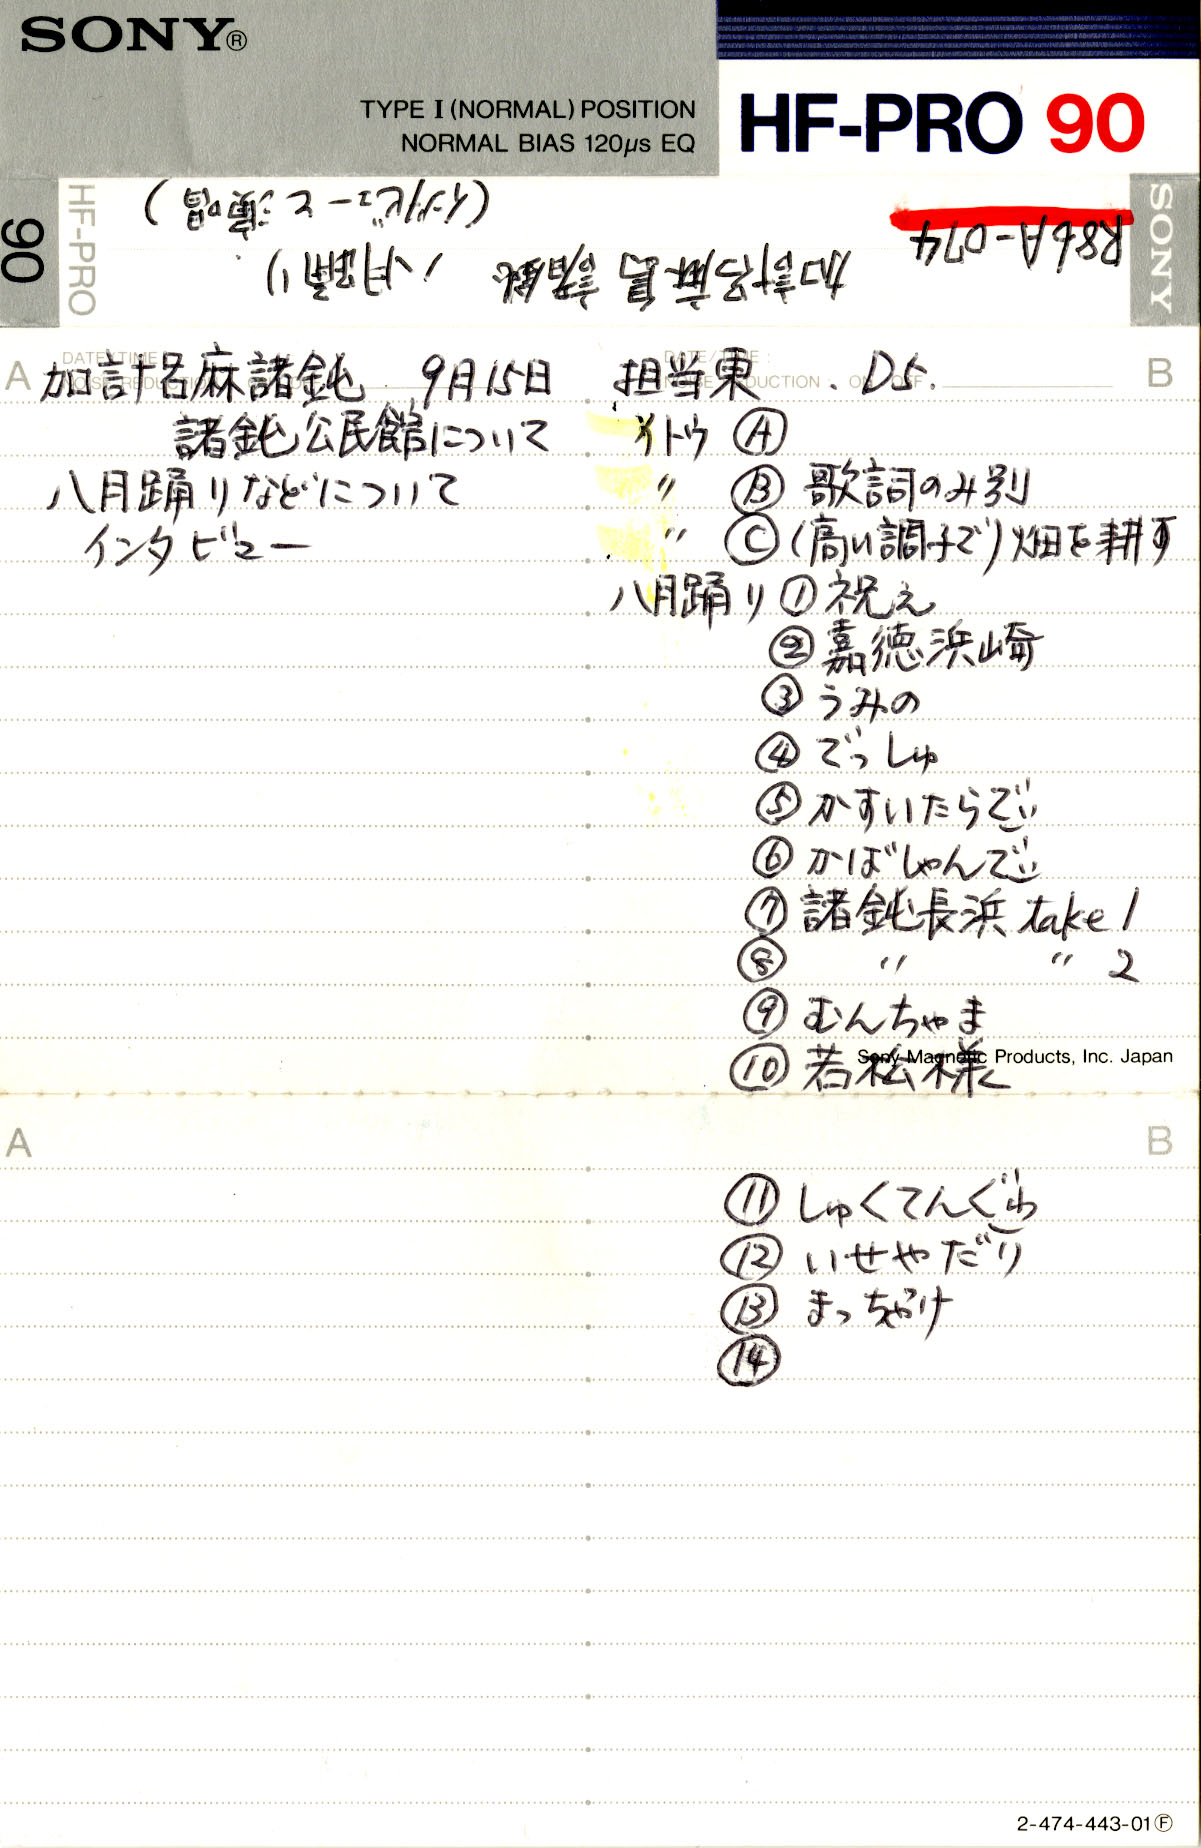 SONY®
TYPE I (NORMAL) POSITION
NORMAL BIAS 120μs EQ
HF-PRO 90
90
HF-PRO
R86A-074
加計呂麻島 諸鈍 八月踊り
(インタビューと演唱)
SONY
A
DATE/TIME
加計呂麻諸鈍 9月15日
諸鈍公民館について
八月踊りなどについて
インタビュー
B
DATE/TIME :
NOISE REDUCTION ON OFF
担当東 、DS.
イトウ Ⓐ
〃 Ⓑ 歌詞のみ別
〃 Ⓒ (高い調子で) 畑を耕す
八月踊り ① 祝え
② 嘉徳浜崎
③ うみの
④ でっしゅ
⑤ かすいたらでぃ
⑥ かばしゃんでぃ
⑦ 諸鈍長浜 take 1
⑧ 〃 〃 2
⑨ むんちゃま
⑩ 若松様
Sony Magnetic Products, Inc. Japan
A
B
⑪ しゅくてんぐゎ
⑫ いせやだり
⑬ まっちゃらけ
⑭
2-474-443-01Ⓕ